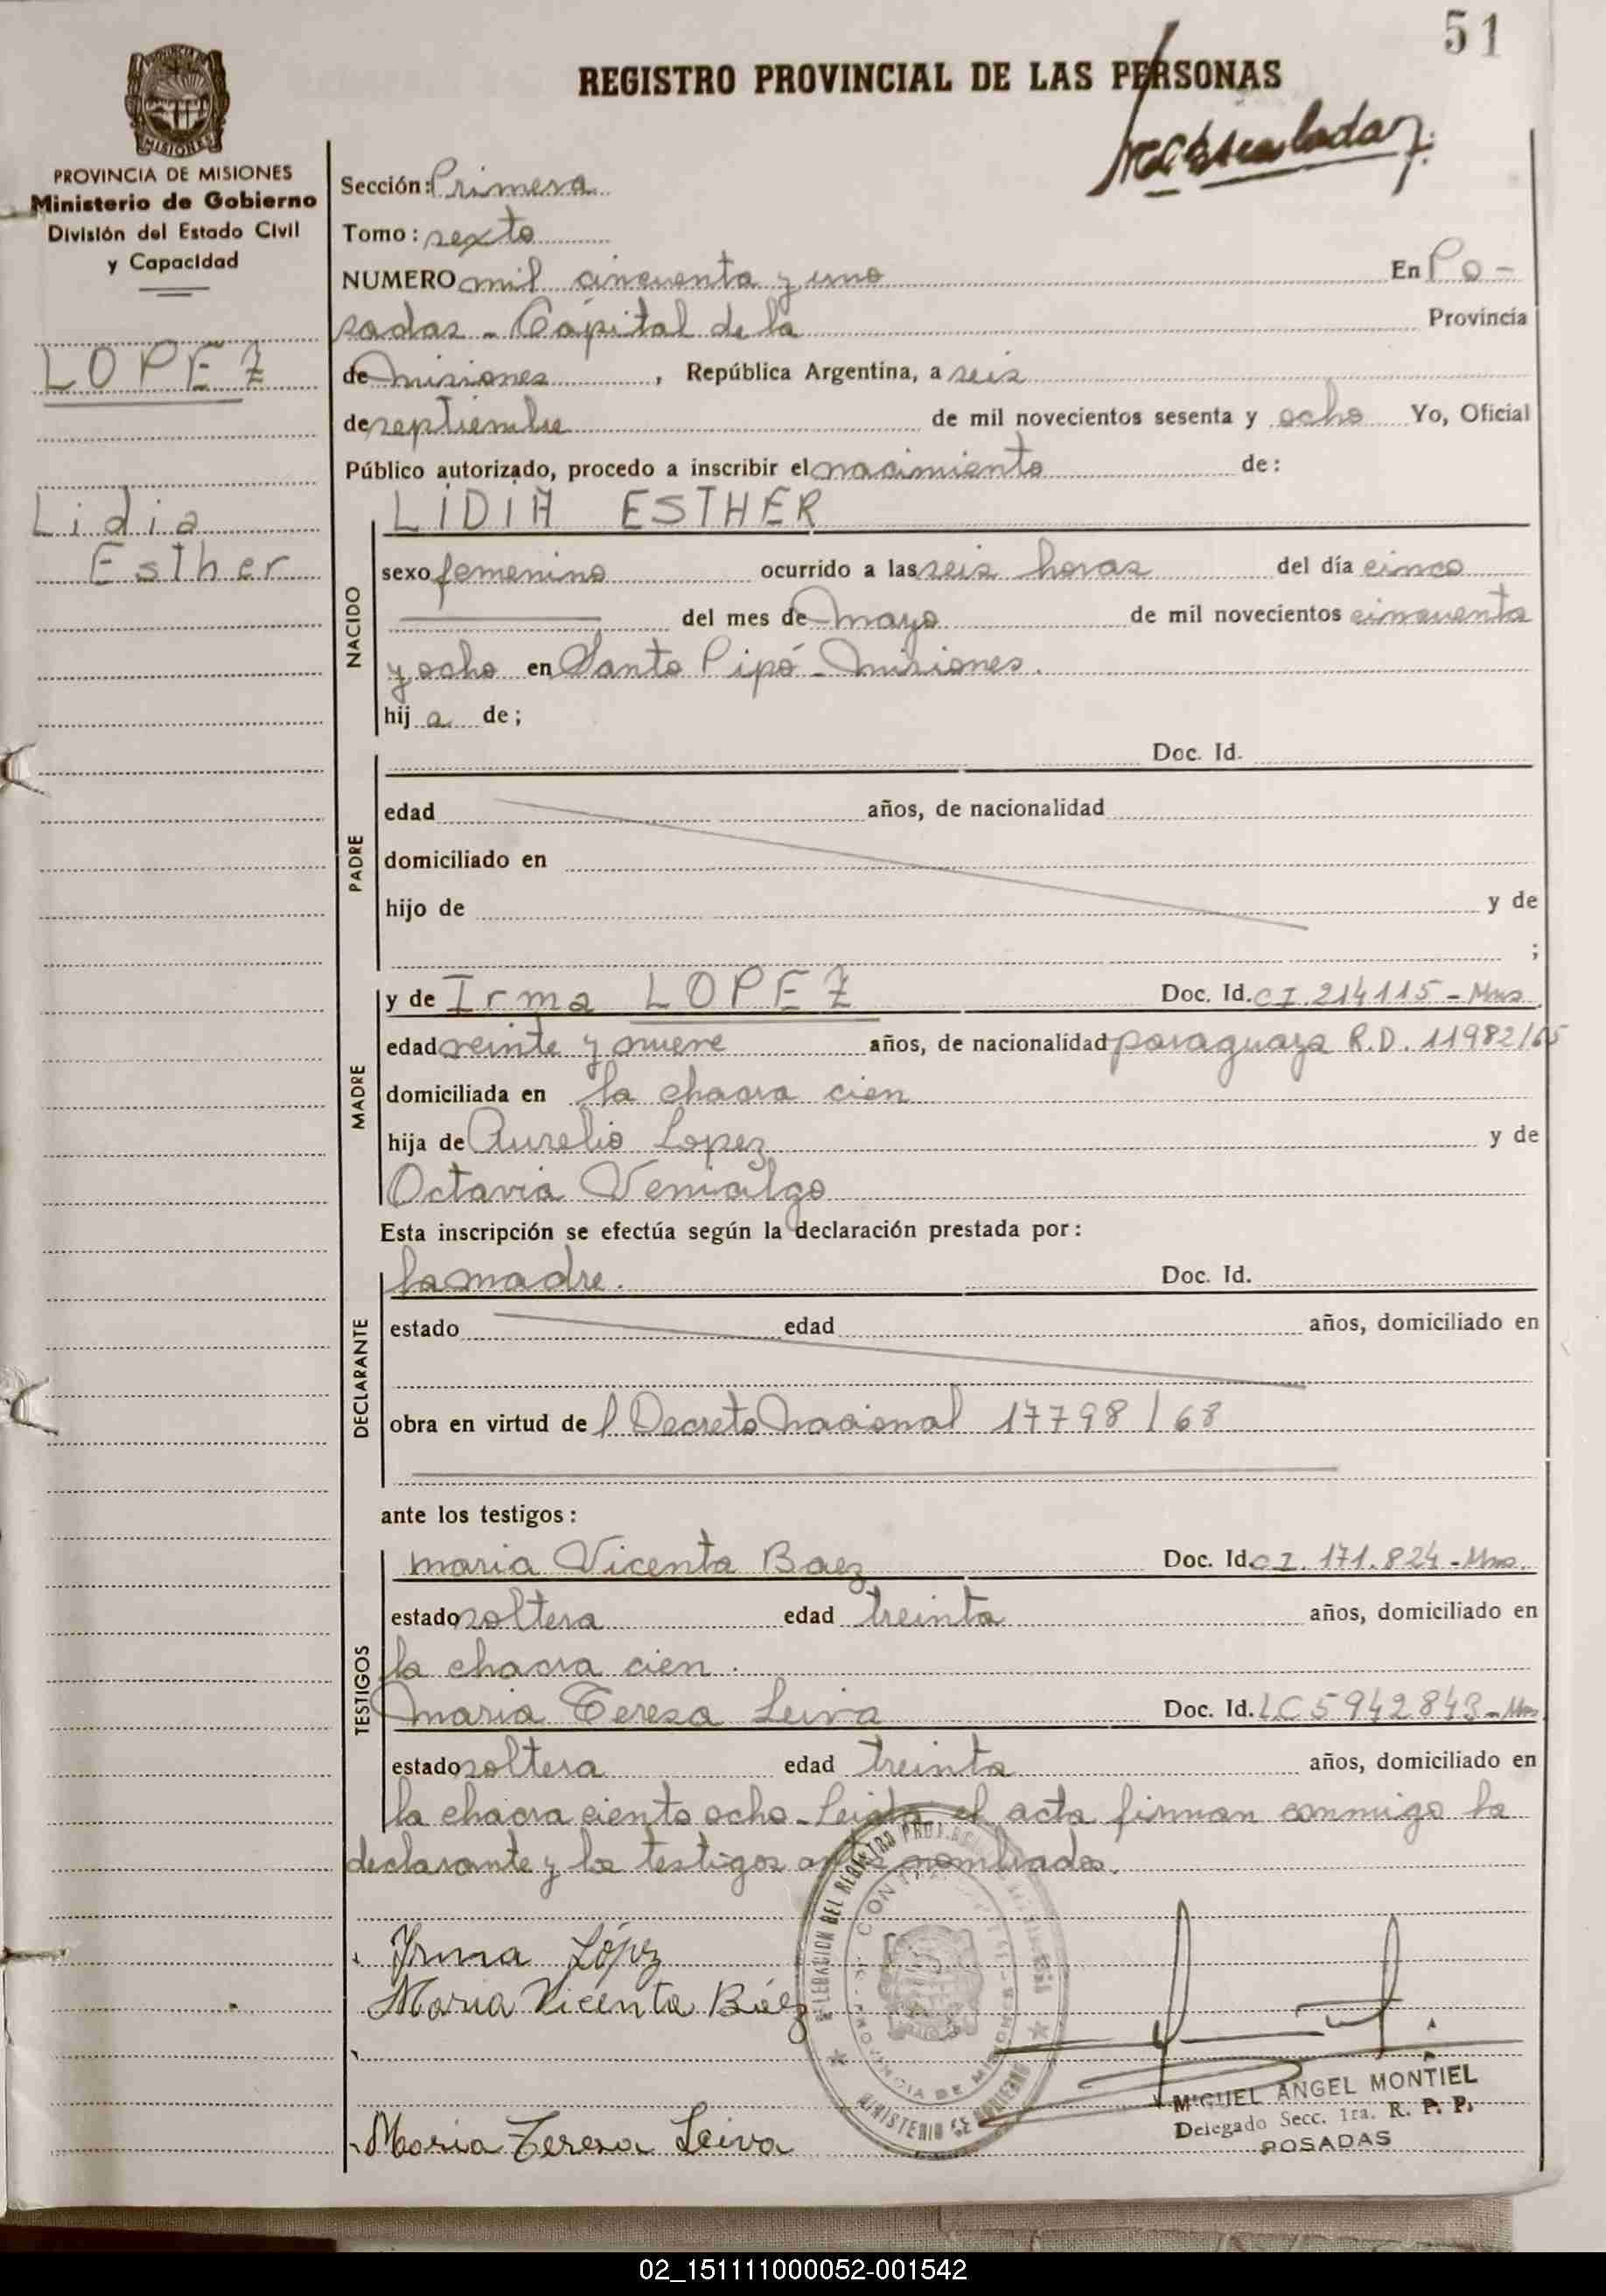 51
REGISTRO PROVINCIAL DE LAS PERSONAS
MISIONES
PROVINCIA DE MISIONES
Ministerio de Gobierno
División del Estado Civil
y Capacidad
LOPEZ
Lidia
Esther
Sección: Primera
Tomo: sexto
NUMERO mil cincuenta y uno En Po-
sadas - Capital de la Provincia
de Misiones, República Argentina, a seis
de septiembre de mil novecientos sesenta y ocho Yo, Oficial
Público autorizado, procedo a inscribir el nacimiento de:
NACIDO
LIDIA ESTHER
sexo femenino ocurrido a las seis horas del día cinco
del mes de mayo de mil novecientos cincuenta
y ocho en Santo Pipó - Misiones.
hija de;
PADRE
Doc. Id.
edad años, de nacionalidad
domiciliado en
hijo de y de
;
MADRE
y de Irma LOPEZ Doc. Id. C I. 214115 - Mnes
edad veinte y nueve años, de nacionalidad paraguaya R.D. 11982/65
domiciliada en la chacra cien
hija de Aurelio Lopez y de
Octavia Venialgo
Esta inscripción se efectúa según la declaración prestada por:
DECLARANTE
la madre. Doc. Id.
estado edad años, domiciliado en
obra en virtud de l Decreto Nacional 17798/68
ante los testigos:
TESTIGOS
Maria Vicenta Baez Doc. Id. C I. 171.824 - Mnes.
estado soltera edad treinta años, domiciliado en
la chacra cien.
Maria Teresa Leiva Doc. Id. LC 5942843 - Mnes
estado soltera edad treinta años, domiciliado en
la chacra ciento ocho - Leida el acta firman conmigo la
declarante y los testigos ante nombrados.
Irma López
Maria Vicenta Báez
Maria Teresa Leiva
DELEGACION DEL REGISTRO
PROVINCIA DE MISIONES
MINISTERIO DE GOBIERNO
MIGUEL ANGEL MONTIEL
Delegado Secc. 1ra. R. P. P.
POSADAS
02_151111000052-001542